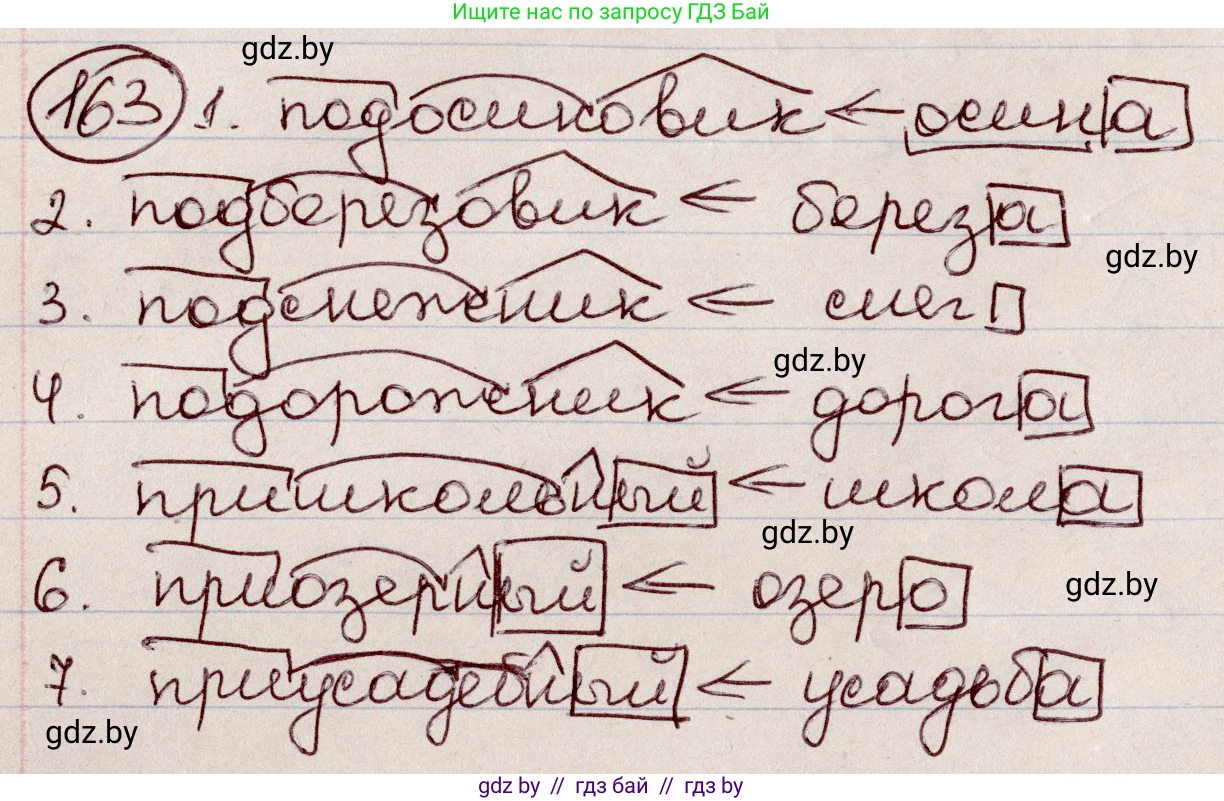 Ищите нас по запросу ГДЗ Бай
gdz.by
163 1. подосиковик ← осина
2. подберезовик ← береза
gdz.by
3. подснежник ← снег
gdz.by
4. подорожник ← дорога
5. пришкольный ← школа
gdz.by
6. приозерный ← озеро
gdz.by
7. приусадебный ← усадьба
gdz.by
gdz by // гдз бай // гдз by